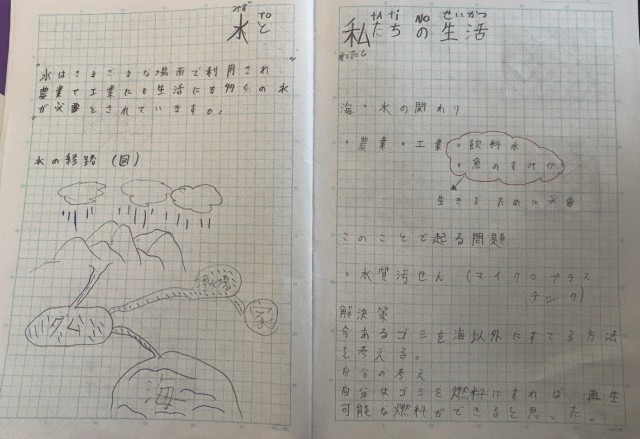 みず TO
水と
"水はさまざまな場面で利用され、
農業で工業にも生活にも多くの水
が必要とされています。"
水の経路 (図)
浄水場
ダム
家
海
たち NO せいかつ
私たちの生活
わたし
海・水の関わり
・農業・工業・飲料水
・魚のすみか
生きるために必要
このことで起る問題
・水質汚せん (マイクロプラス
チック)
解決策
今あるゴミを海以外にすてる方法
を考える。
自分の考え
自分はゴミを燃料にすれば、再生
可能な燃料ができると思った。